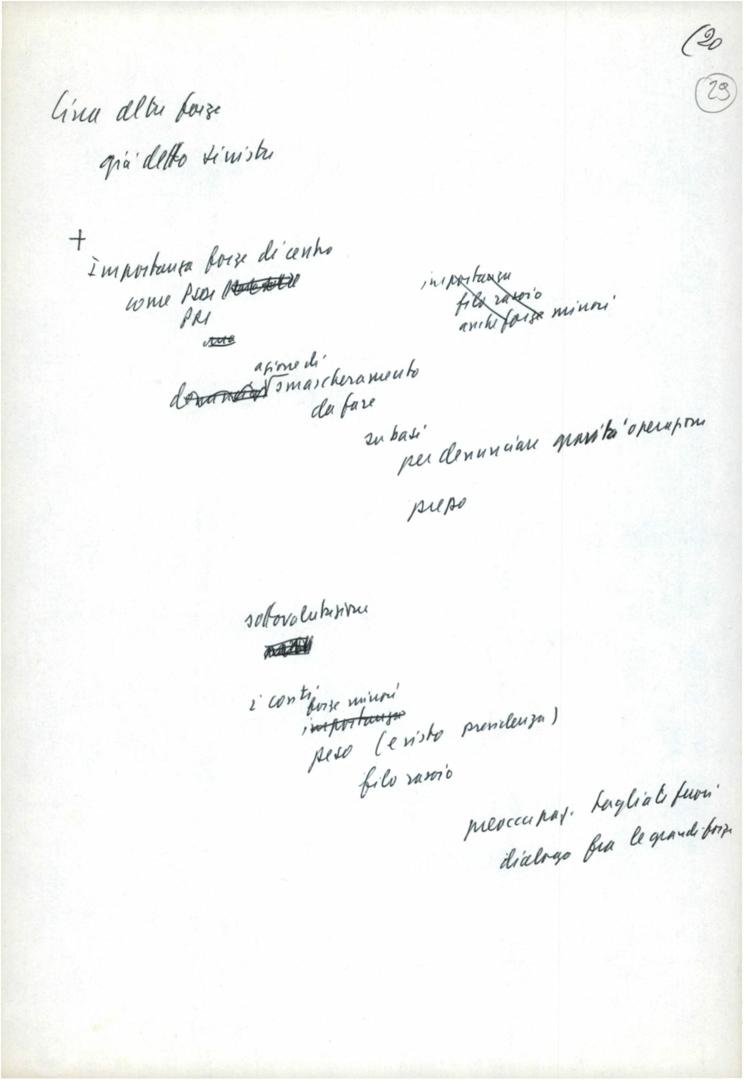 (20
29
Circa altre forze
già detto sinistra
+
Importanza forze di centro
come PSDI
PRI
importanza
filo rasoio
anche forze minori
azione di
smascheramento
da fare
su basi
per denunciare gravità operazione
peso
sottovalutazione
i conti
forze minori
importanza
peso (e visto presidenza)
filo rasoio
preoccupaz. tagliati fuori
dialogo fra le grandi forze